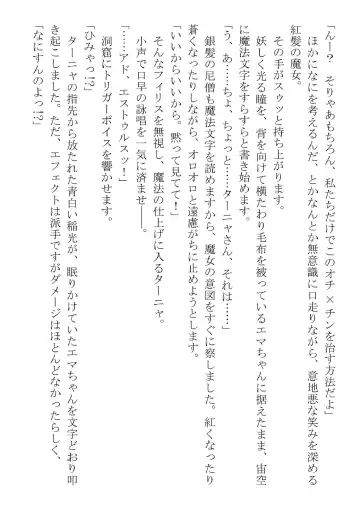 「んー？　そりゃあもちろん、私たちだけでこのオチ×チンを治す方法だよ」
　ほかになにを考えるんだ、とかなんとか無意識に口走りながら、意地悪な笑みを深める
紅髪の魔女。
　その手がスゥッと持ち上がります。
　妖しく光る瞳を、背を向けて横たわり毛布を被っているエマちゃんに据えたまま、宙空
に魔法文字をすらすらと書き始めます。
「う、あ……ちょ、ちょっと……ターニャさん、それは……」
　銀髪の尼僧も魔法文字を読めますから、魔女の意図をすぐに察しました。紅くなったり
蒼くなったりしながら、オロオロと遠慮がちに止めようとします。
「いいからいいから。黙って見てて！」
　そんなフィリスを無視し、魔法の仕上げに入るターニャ。
　小声で口早の詠唱を一気に済ませ――。
「……アド、エストゥルスッ！」
　洞窟にトリガーボイスを響かせます。
「ひみゃっ!?」
　ターニャの指先から放たれた青白い稲光が、眠りかけていたエマちゃんを文字どおり叩
き起こしました。ただ、エフェクトは派手ですがダメージはほとんどなかったらしく、
「なにすんのよっ!?」